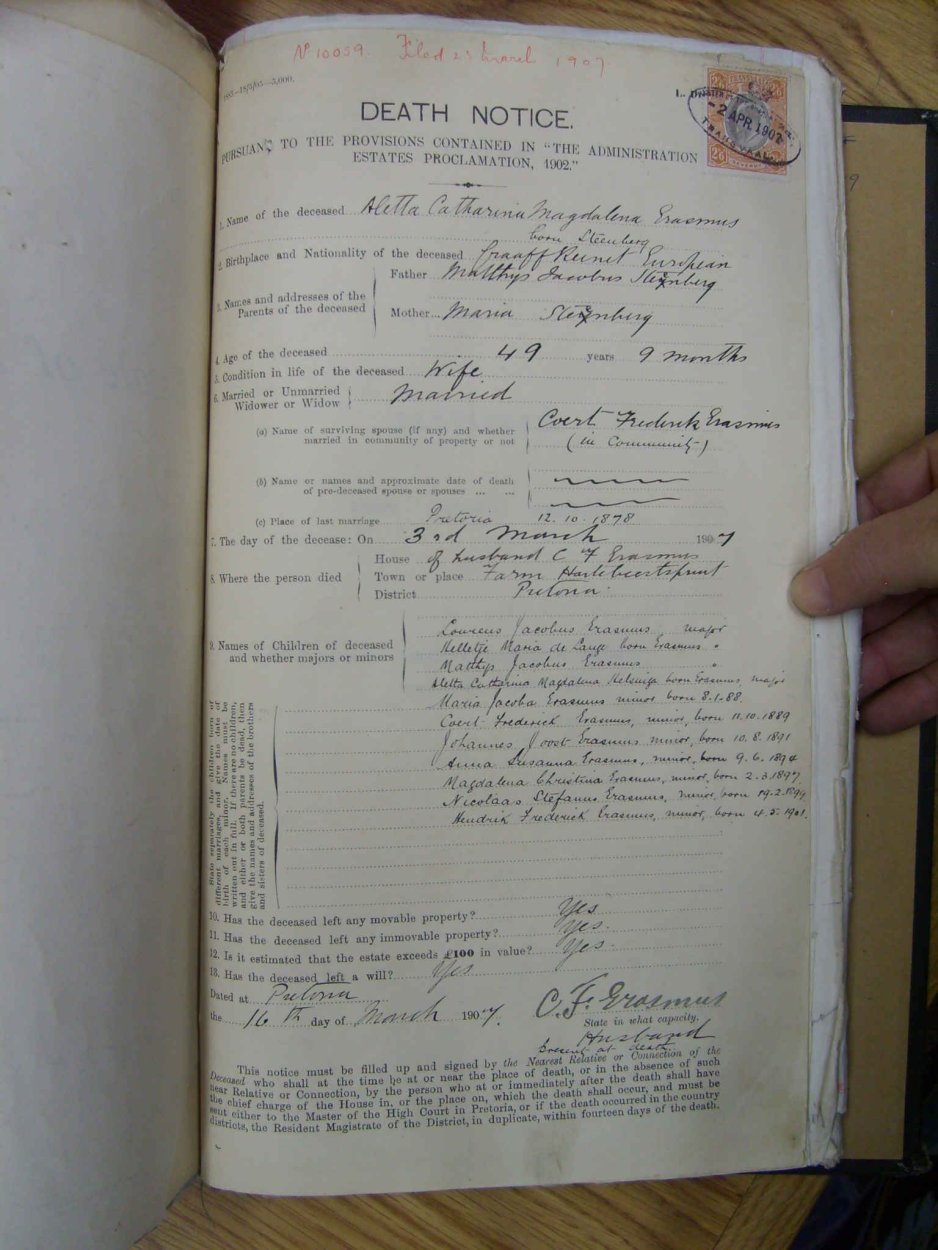 No 10059. Filed 2 March 1907
5,000.
DEATH NOTICE.
PURSUANT TO THE PROVISIONS CONTAINED IN "THE ADMINISTRATION
ESTATES PROCLAMATION, 1902."
2 APR. 1907
TRANSVAAL
2/6
1. Name of the deceased Aletta Catharina Magdalena Erasmus
born Steenberg
2. Birthplace and Nationality of the deceased Graaff Reinet European
3. Names and addresses of the Parents of the deceased
Father Matthys Jacobus Steenberg
Mother Maria Steenberg
4. Age of the deceased 49 years 9 months
5. Condition in life of the deceased Wife
6. Married or Unmarried
Widower or Widow
Married
(a) Name of surviving spouse (if any) and whether
married in community of property or not
Coert Frederik Erasmus
(in Community)
(b) Name or names and approximate date of death
of pre-deceased spouse or spouses ... ...
(c) Place of last marriage Pretoria 12.10.1878
7. The day of the decease: On 3rd March 1907
8. Where the person died
House of husband C F Erasmus
Town or place Farm Hartebeestspruit
District Pretoria
9. Names of Children of deceased
and whether majors or minors
Lourens Jacobus Erasmus major
Helletje Maria de Lange born Erasmus "
Matthys Jacobus Erasmus "
Aletta Catharina Magdalena born Erasmus major
Maria Jacoba Erasmus minor born 8.1.88
Coert Frederick Erasmus, minor, born 11.10.1889
Johannes Joost Erasmus minor, born 10.8.1891
Anna Susanna Erasmus, minor, born 9.6.1894
Magdalena Christina Erasmus, minor, born 2.3.1897
Nicolaas Stefanus Erasmus, minor, born 19.2.1899
Hendrik Frederick Erasmus, minor, born 4.5.1901.
State separately the children born of
different marriages, and give the date of
birth of each minor. Names must be
written out in full. If there are no children,
and either or both parents be dead, then
give the names and addresses of the brothers
and sisters of deceased.
10. Has the deceased left any movable property? Yes
11. Has the deceased left any immovable property? Yes.
12. Is it estimated that the estate exceeds £100 in value? Yes.
13. Has the deceased left a will? Yes
Dated at Pretoria
the 16th day of March 1907.
C. F. Erasmus
State in what capacity.
Husband
present at death.
This notice must be filled up and signed by the Nearest Relative or Connection of the
Deceased who shall at the time be at or near the place of death, or in the absence of such
near Relative or Connection, by the person who at or immediately after the death shall have
the chief charge of the House in, or the place on, which the death shall occur, and must be
sent either to the Master of the High Court in Pretoria, or if the death occurred in the country
districts, the Resident Magistrate of the District, in duplicate, within fourteen days of the death.